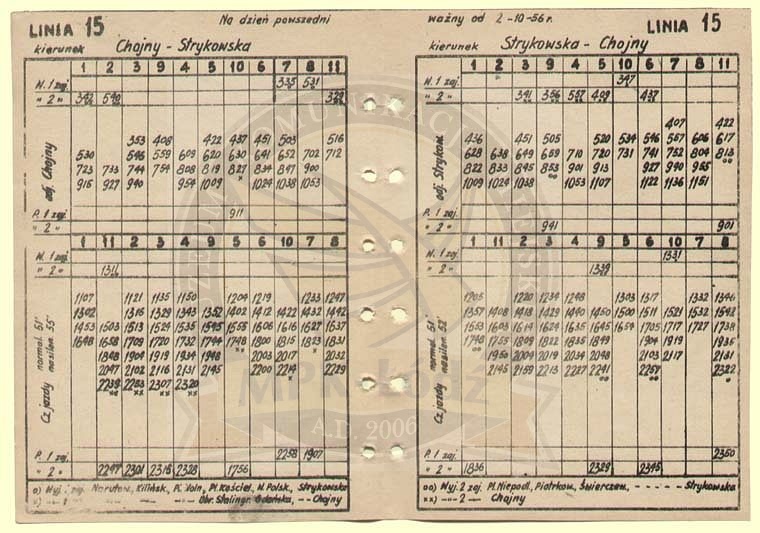 LINIA 15
Na dzień powszedni
kierunek Chojny - Strykowska
1 2 3 9 4 5 10 6 7 8 11
N. 1 zaj. 335 531
" 2 " 342 540 329
odj. Chojny
353 408 422 437 451 503 516
530 546 559 609 620 630 641 652 702 712
723 733 744 754 808 819 827 834 847 900
915 927 940 954 1009 1024 1038 1053
P. 1 zaj. 911
" 2 "
1 11 2 3 4 9 5 6 10 7 8
N. 1 zaj.
" 2 "
Cz jazdy normal. 51' nasilen. 55'
1107 1121 1135 1150 1204 1219 1233 1247
1302 1316 1329 1343 1352 1402 1412 1422 1432 1442
1453 1503 1513 1524 1535 1545 1555 1606 1616 1627 1637
1648 1658 1709 1720 1732 1744 1748 1800 1815 1823 1831
1848 1904 1919 1934 1948 2003 2017 2032
2047 2102 2116 2131 2145 2200 2214 2229
2239 2253 2307 2320
P. 1 zaj. 2258 1907
" 2 " 2247 2301 2315 2328 1756
x) Wyj. 2 zaj. Narutow., Kilińsk., Pl. Woln., Pl. Kościel., W. Polsk., Strykowska
Obr. Stalingr. Gdańska, -- Chojny
ważny od 2-10-56 r.
LINIA 15
kierunek Strykowska - Chojny
1 2 3 9 4 5 10 6 7 8 11
N. 1 zaj. 347
" 2 " 341 356 409 437
odj. Strykow.
407 422
436 451 505 520 534 546 557 606 617
628 638 649 659 710 720 731 741 752 804 813
822 833 845 853 901 915 927 940 955
1009 1024 1038 1053 1107 1122 1136 1151
P. 1 zaj.
" 2 " 941 901
1 11 2 3 4 9 5 6 10 7 8
N. 1 zaj. 1331
" 2 " 1339
Cz jazdy normal. 51' nasilen. 52'
1205 1220 1234 1248 1303 1317 1332 1346
1357 1408 1418 1429 1440 1450 1500 1511 1521 1532 1542
1553 1603 1614 1624 1635 1645 1654 1705 1717 1727 1738
1748 1755 1809 1822 1835 1849 1904 1919 1935
1950 2004 2019 2034 2048 2103 2117 2131
2145 2159 2213 2227 2241 2257 2322
P. 1 zaj. 2350
" 2 " 1836 2329 2345
oo) Wyj. 2 zaj. Pl. Niepodl., Piotrkow., Świerczew. - - - - - Strykowska
xx) -- 2 -- Chojny
MPK-Łódź
A.D. 2006